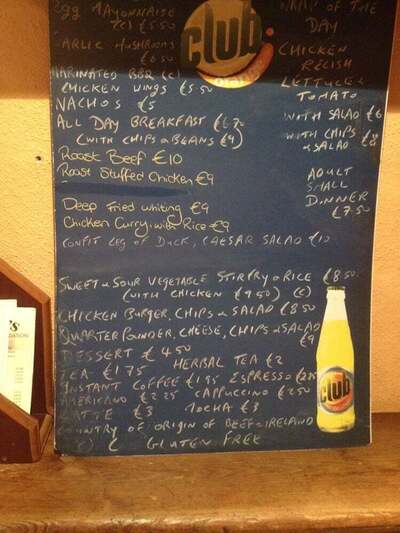 Egg Mayonnaise
(c) €5.50
Garlic Mushrooms
€6.50
Marinated BBQ (c)
Chicken Wings €5.50
Nachos €5
All Day Breakfast €6.70
(with chips & beans €9)
Roast Beef €10
Roast Stuffed Chicken €9
Deep Fried whiting €9
Chicken Curry with Rice €9
Confit Leg of Duck, Caesar Salad €10
Sweet & Sour Vegetable Stirfry & Rice €8.50
(with chicken €9.50) (c)
Chicken Burger, Chips & Salad €8.50
Quarter Pounder, Cheese, Chips & Salad
€9
Dessert €4.50
Tea €1.75 Herbal Tea €2
Instant Coffee €1.95 Espresso €2.25
Americano €2.25 Cappuccino €2.50
Latte €3 Mocha €3
Country of origin of Beef = Ireland
(c) Gluten Free
Wrap of the
Day
Chicken
Relish
Lettuce &
Tomato
with Salad €6
with chips
& salad €8
Adult
Small
Dinner
€7.50
club
orange
club